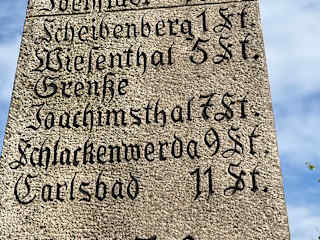 Scheibenberg 1 St.
Wiesenthal 5 St.
Grenße
Joachimsthal 7 St.
Schlackenwerda 9 St.
Carlsbad 11 St.